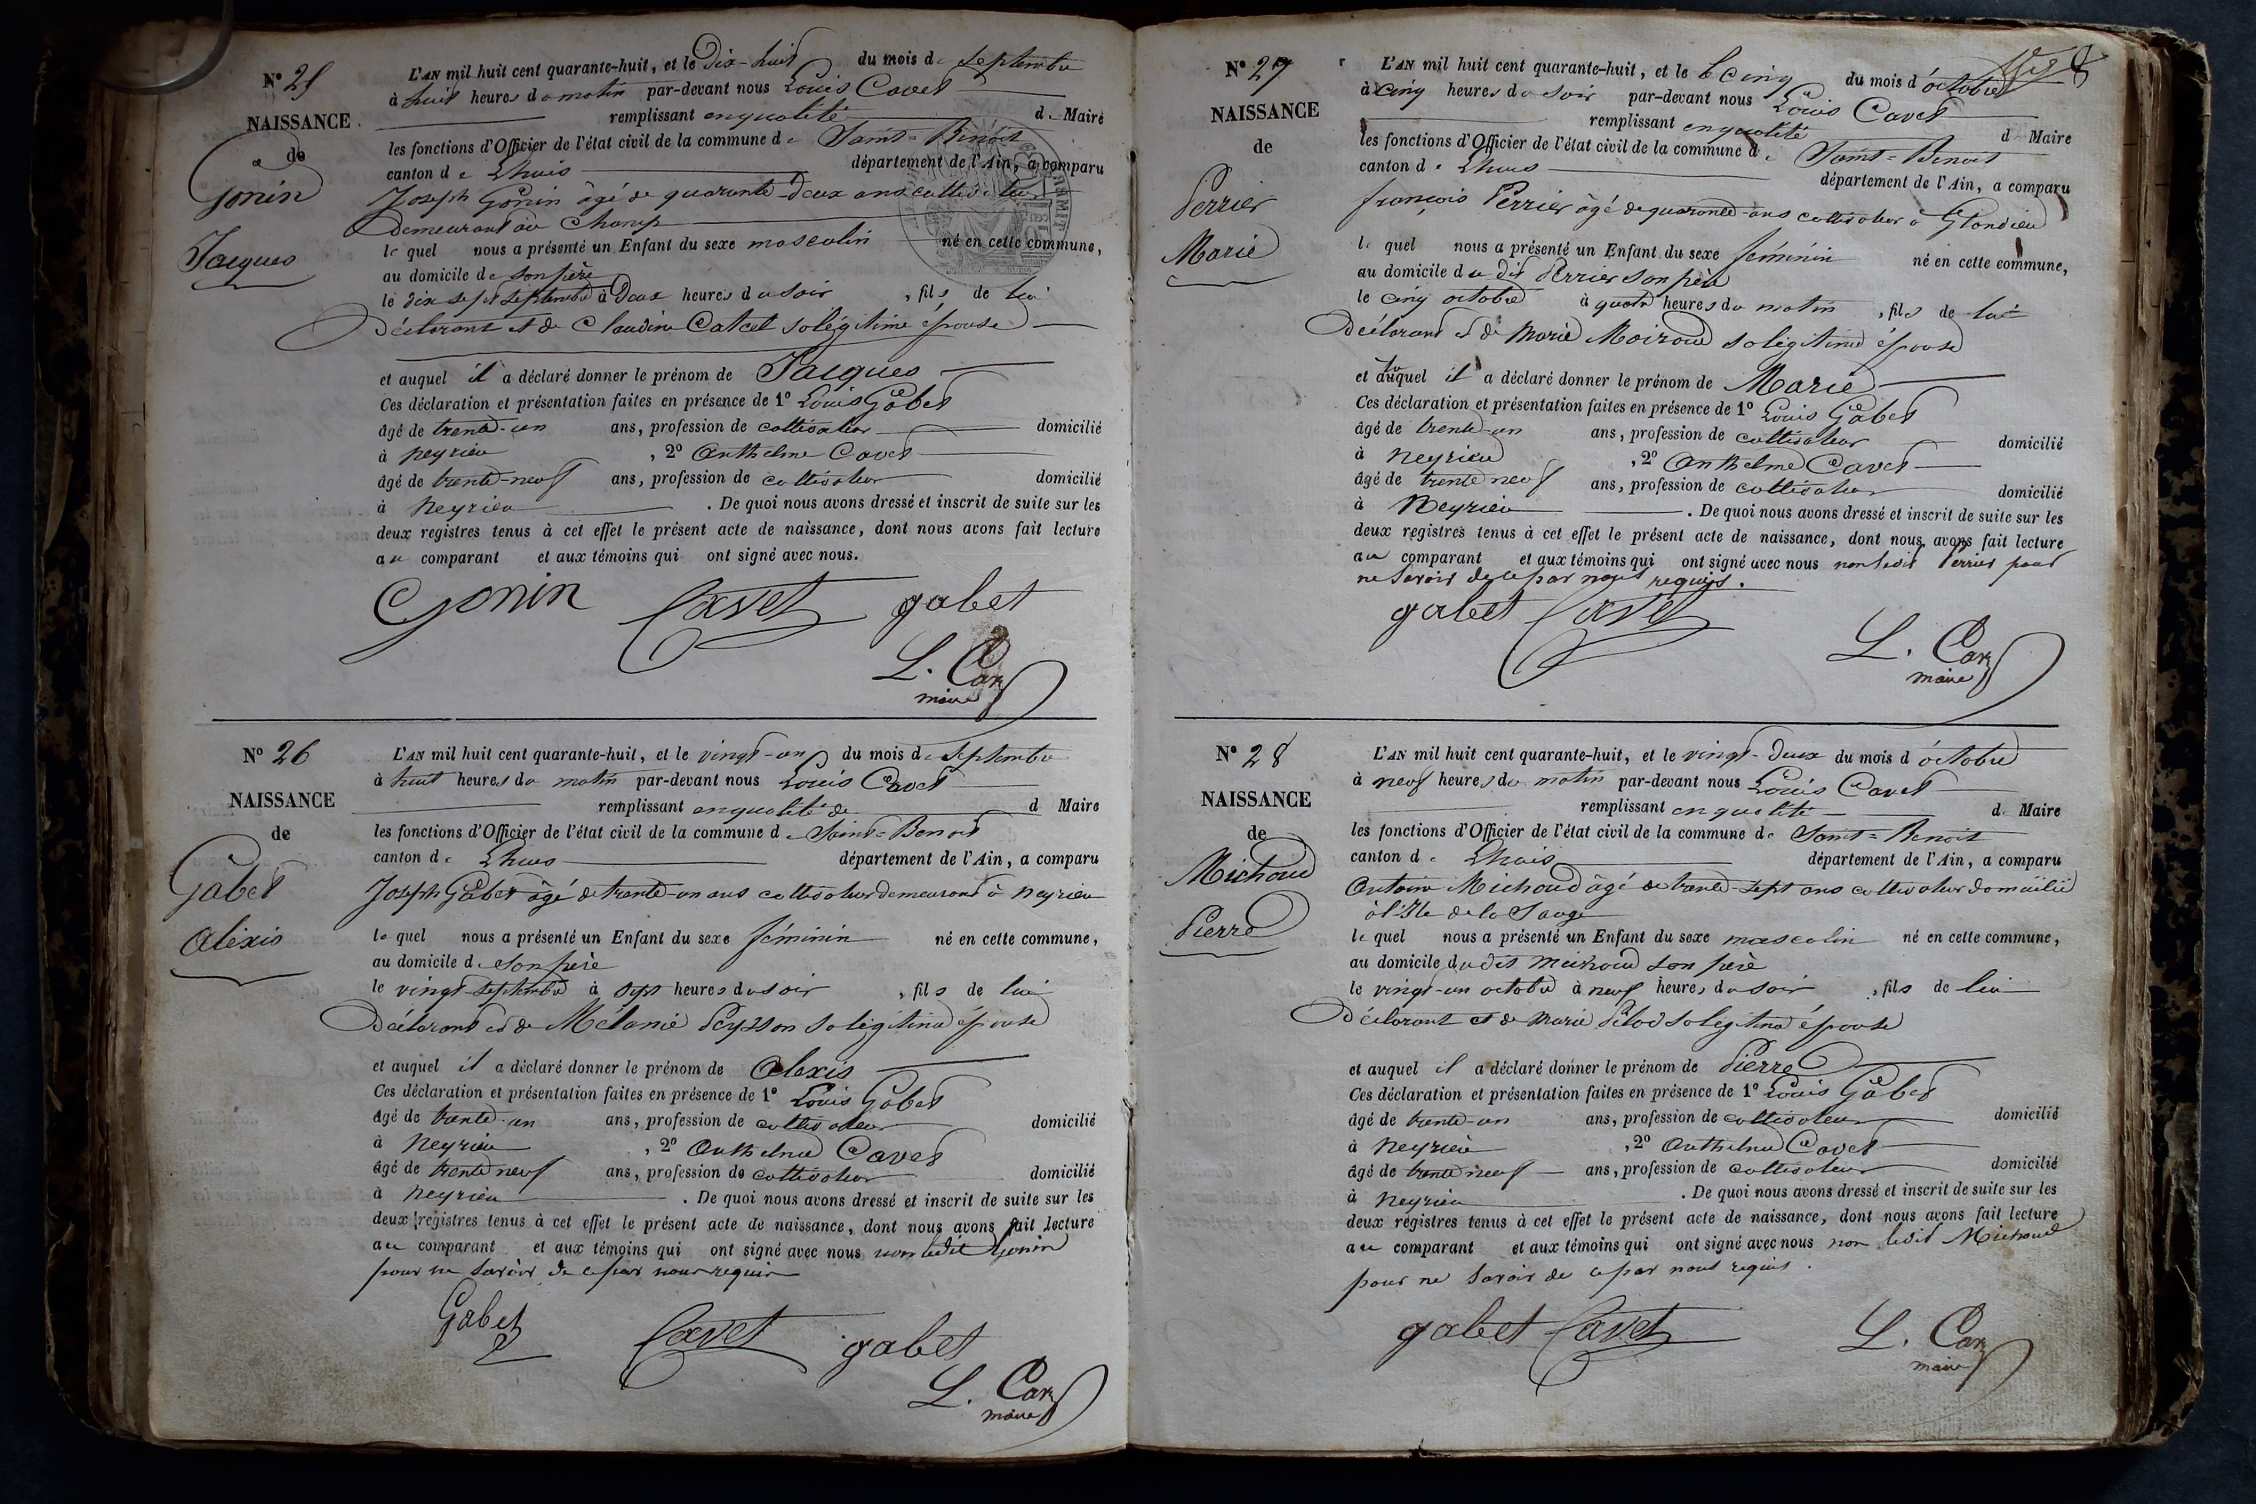 N° 25
NAISSANCE
de
Gonin
Jacques
L'AN mil huit cent quarante-huit, et le Dix-huit du mois de Septembre
à huit heures du matin par-devant nous Louis Cavet
remplissant en qualité de Maire
les fonctions d'Officier de l'état civil de la commune de Saint-Benoit
canton de Lhuis département de l'Ain, a comparu
Joseph Gonin âgé de quarante-deux ans cultivateur
demeurant au Champ
le quel nous a présenté un Enfant du sexe masculin né en cette commune,
au domicile de son père
le dix sept septembre à Deux heures du soir, fils de lui
Déclarant et de Claudine Catcel sa légitime épouse
et auquel il a déclaré donner le prénom de Jacques
Ces déclaration et présentation faites en présence de 1° Louis Gabet
âgé de trente-un ans, profession de cultivateur domicilié
à neyrieu, 2° Anthelme Cavet
âgé de trente-neuf ans, profession de cultivateur domicilié
à neyrieu. De quoi nous avons dressé et inscrit de suite sur les
deux registres tenus à cet effet le présent acte de naissance, dont nous avons fait lecture
au comparant et aux témoins qui ont signé avec nous.
Gonin Cavet gabet
L. Cavet
maire
N° 26
NAISSANCE
de
Gabet
Alexis
L'AN mil huit cent quarante-huit, et le vingt-un du mois de Septembre
à huit heures du matin par-devant nous Louis Cavet
remplissant en qualité de d Maire
les fonctions d'Officier de l'état civil de la commune de Saint-Benoit
canton de Lhuis département de l'Ain, a comparu
Joseph Gabet âgé de trente-un ans cultivateur demeurant à neyrieu
le quel nous a présenté un Enfant du sexe féminin né en cette commune,
au domicile de son père
le vingt septembre à sept heures du soir, fils de lui
Déclarant et de Mélanie Peysson sa légitime épouse
et auquel il a déclaré donner le prénom de Alexis
Ces déclaration et présentation faites en présence de 1° Louis Gabet
âgé de trente-un ans, profession de cultivateur domicilié
à neyrieu, 2° Anthelme Cavet
âgé de trente neuf ans, profession de cultivateur domicilié
à neyrieu. De quoi nous avons dressé et inscrit de suite sur les
deux registres tenus à cet effet le présent acte de naissance, dont nous avons fait lecture
au comparant et aux témoins qui ont signé avec nous non ledit Gonin
pour ne savoir de ce par nous requis
Gabet Cavet gabet
L. Cavet
maire
N° 27
NAISSANCE
de
Perrier
Marie
L'AN mil huit cent quarante-huit, et le Cinq du mois d'octobre
à cinq heures du soir par-devant nous Louis Cavet
remplissant en qualité d Maire
les fonctions d'Officier de l'état civil de la commune de Saint-Benoit
canton de Lhuis département de l'Ain, a comparu
françois Perrier âgé de quarante ans cultivateur à Glandieu
le quel nous a présenté un Enfant du sexe féminin né en cette commune,
au domicile du dit Perrier son père
le cinq octobre à quatre heures du matin, fils de lui
Déclarant et de Marie Moiroud sa légitime épouse
et auquel il a déclaré donner le prénom de Marie
Ces déclaration et présentation faites en présence de 1° Louis Gabet
âgé de trente-un ans, profession de cultivateur domicilié
à neyrieu, 2° Anthelme Cavet
âgé de trente neuf ans, profession de cultivateur domicilié
à Neyrieu. De quoi nous avons dressé et inscrit de suite sur les
deux registres tenus à cet effet le présent acte de naissance, dont nous avons fait lecture
au comparant et aux témoins qui ont signé avec nous non ledit Perrier pour
ne savoir de ce par nous requis.
gabet Cavet
L. Cavet
maire
N° 28
NAISSANCE
de
Michoud
Pierre
L'AN mil huit cent quarante-huit, et le vingt-deux du mois d'octobre
à neuf heures du matin par-devant nous Louis Cavet
remplissant en qualité de Maire
les fonctions d'Officier de l'état civil de la commune de Saint-Benoit
canton de Lhuis département de l'Ain, a comparu
Antoine Michoud âgé de trente-sept ans cultivateur domicilié
à l'Ile de la Sauge
le quel nous a présenté un Enfant du sexe masculin né en cette commune,
au domicile du dit Michoud son père
le vingt-un octobre à neuf heures du soir, fils de lui
Déclarant et de Marie Pélod sa légitime épouse
et auquel il a déclaré donner le prénom de Pierre
Ces déclaration et présentation faites en présence de 1° Louis Gabet
âgé de trente-un ans, profession de cultivateur domicilié
à neyrieu, 2° Anthelme Cavet
âgé de trente neuf ans, profession de cultivateur domicilié
à neyrieu. De quoi nous avons dressé et inscrit de suite sur les
deux registres tenus à cet effet le présent acte de naissance, dont nous avons fait lecture
au comparant et aux témoins qui ont signé avec nous non ledit Michoud
pour ne savoir de ce par nous requis.
gabet Cavet
L. Cavet
maire